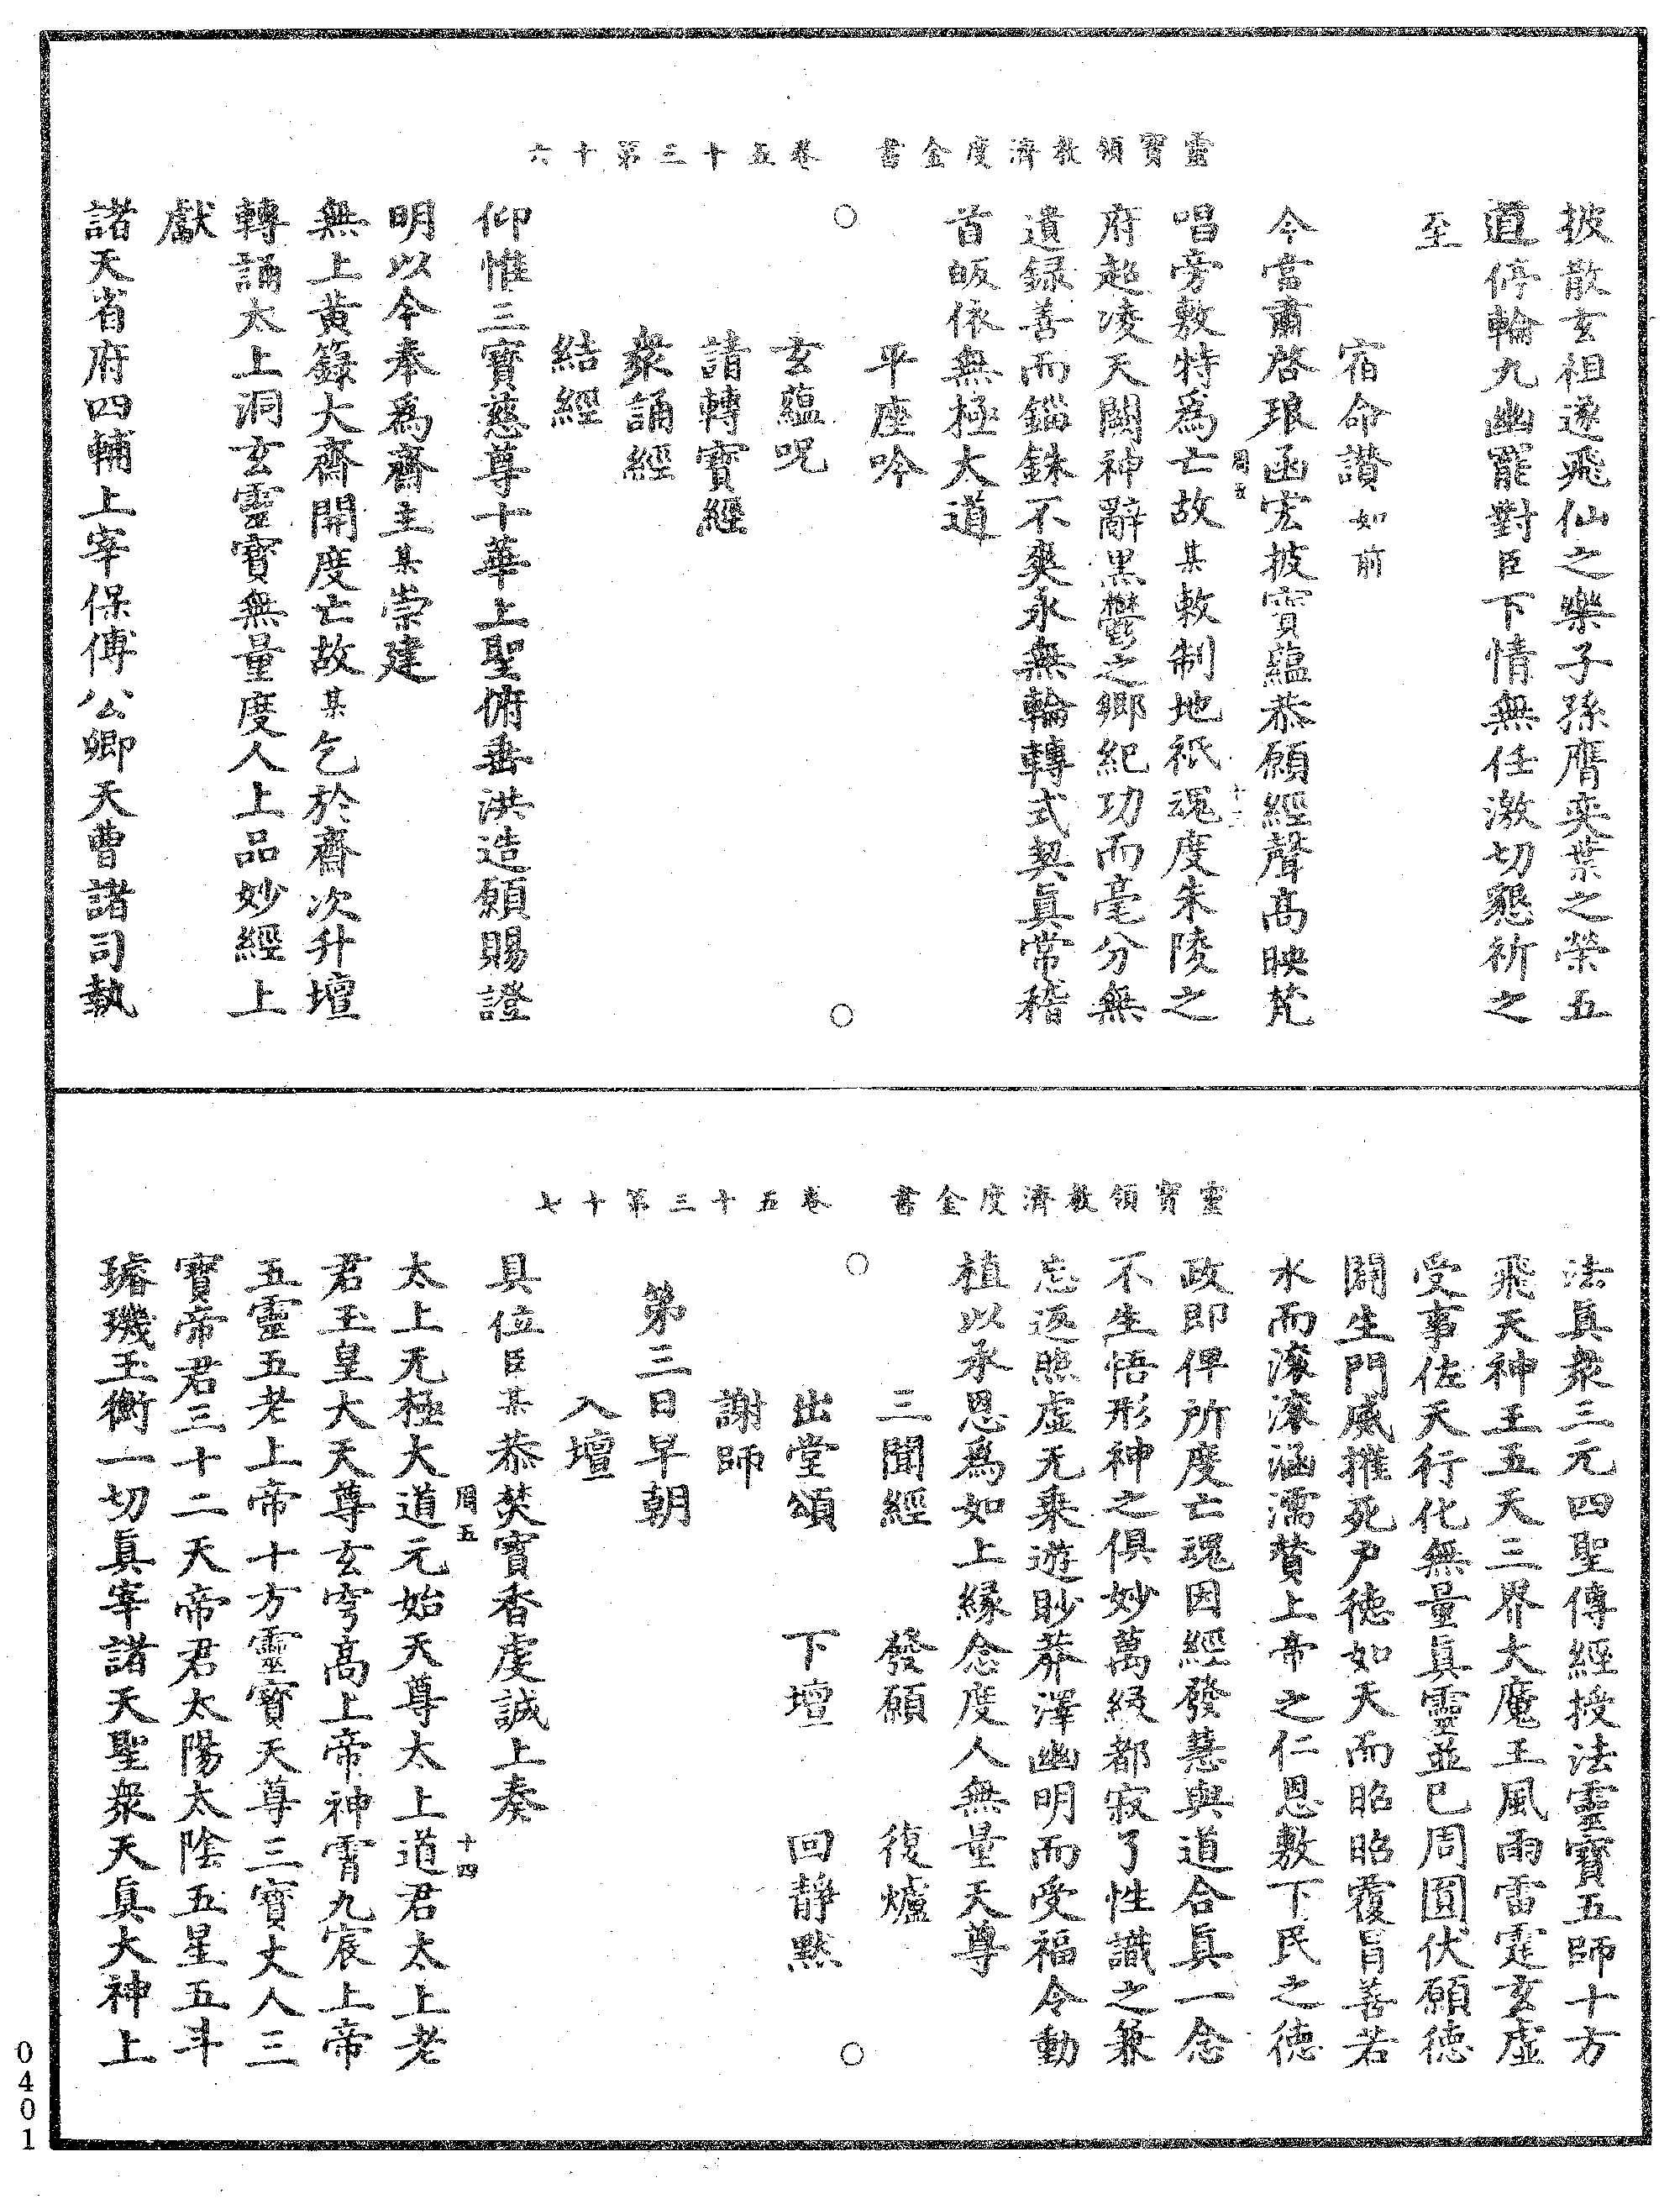 靈寶領教濟度金書　卷五十三第十六
披散玄祖遂飛仙之樂子孫膺奕葉之榮五
道停輪九幽罷對臣下情無任激切懇祈之
至
宿命讃如前
今當肅啓琅函宏披寶蘊恭願經聲高映梵
唱旁敷特爲亡故某敕制地祇魂度朱陵之
府超凌天闕神辭黑欝之鄉紀功而毫分無
遺録善而錙銖不爽永無輪轉式契眞常稽
首皈依無極大道
平座吟
玄蘊呪
請轉寶經
衆誦經
結經
仰惟三寶慈尊十華上聖俯垂洪造願賜證
明以今奉爲齋主某崇建
無上黄籙大齋開度亡故某乞於齋次升壇
轉誦太上洞玄靈寶無量度人上品妙經上
獻
諸天省府四輔上宰保傅公卿天曹諸司執
靈寶領教濟度金書　卷五十三第十七
法眞衆三元四聖傳經授法靈寶五師十方
飛天神王五天三界大魔王風雨雷霆玄虛
受事佐天行化無量眞靈並已周圓伏願德
開生門威摧死户德如天而昭昭覆冐善若
水而滾滾涵濡賛上帝之仁恩敷下民之德
政即俾所度亡魂因經發慧與道合眞一念
不生悟形神之俱妙萬級都寂了性識之兼
忘返照虛无乘遊眇莽澤幽明而受福令動
植以承恩爲如上縁念度人無量天尊
三聞經　發願　復爐
出堂頌　下壇　回靜黙
謝師
第三日早朝
入壇
具位臣某恭焚寶香虔誠上奏
周五
十四
太上无極大道元始天尊太上道君太上老
君玉皇大天尊玄穹高上帝神霄九宸上帝
五靈五老上帝十方靈寶天尊三寶丈人三
寶帝君三十二天帝君太陽太陰五星五斗
璿璣玉衡一切眞宰諸天聖衆天眞大神上
0401